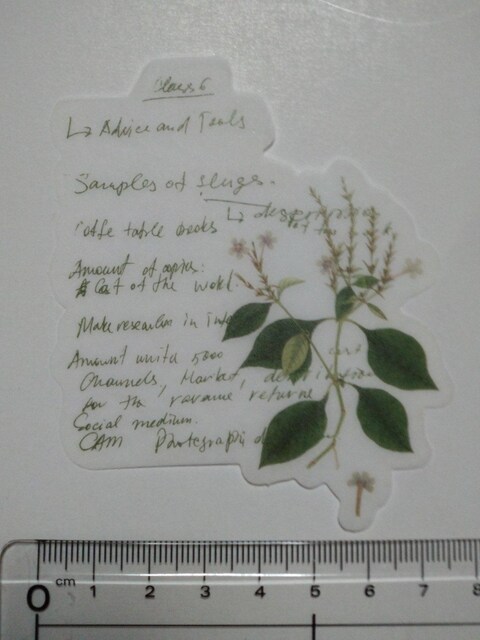 Class 6
↳ Advice and Tools
Samples of sluges.
↳
Coffe table books
Amount of copies:
Cost of the work:
Make researches in
Amount until 5000 cost
Channels, Market,
for the revenue returne
Social medium.
CAM Photographi
0 cm 1 2 3 4 5 6 7 8